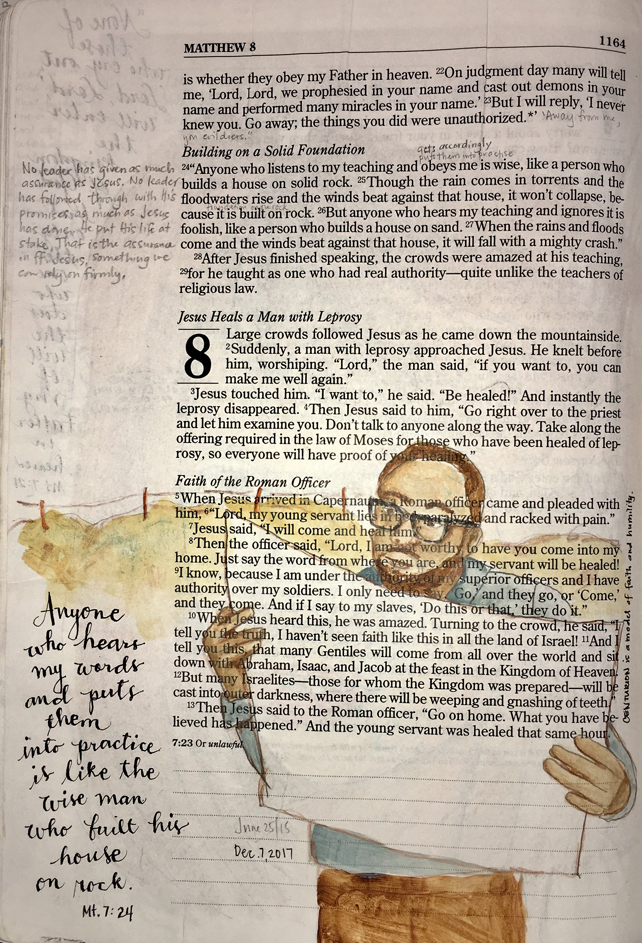 MATTHEW 8
1164
is whether they obey my Father in heaven. 22On judgment day many will tell
me, ‘Lord, Lord, we prophesied in your name and cast out demons in your
name and performed many miracles in your name.’ 23But I will reply, ‘I never
knew you. Go away; the things you did were unauthorized.*’
'Away from me,
evildoers.'
Building on a Solid Foundation
acts accordingly
puts them into practise
24“Anyone who listens to my teaching and obeys me is wise, like a person who
builds a house on solid rock. 25Though the rain comes in torrents and the
floodwaters rise and the winds beat against that house, it won’t collapse, be-
cause it is built on rock. 26But anyone who hears my teaching and ignores it is
foolish, like a person who builds a house on sand. 27When the rains and floods
come and the winds beat against that house, it will fall with a mighty crash.”
28After Jesus finished speaking, the crowds were amazed at his teaching,
29for he taught as one who had real authority—quite unlike the teachers of
religious law.
No leader has given as much
assurance as Jesus. No leader
has followed through with his
promises as much as Jesus
has done. He put his life at
stake. That is the assurance
in Jesus, something we
can rely on firmly.
Jesus Heals a Man with Leprosy
8 Large crowds followed Jesus as he came down the mountainside.
2Suddenly, a man with leprosy approached Jesus. He knelt before
him, worshiping. “Lord,” the man said, “if you want to, you can
make me well again.”
3Jesus touched him. “I want to,” he said. “Be healed!” And instantly the
leprosy disappeared. 4Then Jesus said to him, “Go right over to the priest
and let him examine you. Don’t talk to anyone along the way. Take along the
offering required in the law of Moses for those who have been healed of lep-
rosy, so everyone will have proof of your healing.”
Faith of the Roman Officer
5When Jesus arrived in Capernaum, a Roman officer came and pleaded with
him, 6“Lord, my young servant lies in bed, paralyzed and racked with pain.”
7Jesus said, “I will come and heal him.”
8Then the officer said, “Lord, I am not worthy to have you come into my
home. Just say the word from where you are, and my servant will be healed!
9I know, because I am under the authority of my superior officers and I have
authority over my soldiers. I only need to say, ‘Go,’ and they go, or ‘Come,’
and they come. And if I say to my slaves, ‘Do this or that,’ they do it.”
10When Jesus heard this, he was amazed. Turning to the crowd, he said, “I
tell you the truth, I haven’t seen faith like this in all the land of Israel! 11And I
tell you this, that many Gentiles will come from all over the world and sit
down with Abraham, Isaac, and Jacob at the feast in the Kingdom of Heaven.
12But many Israelites—those for whom the Kingdom was prepared—will be
cast into outer darkness, where there will be weeping and gnashing of teeth.”
13Then Jesus said to the Roman officer, “Go on home. What you have be-
lieved has happened.” And the young servant was healed that same hour.
7:23 Or unlawful.
is a model of faith and humility
Anyone
who hears
my words
and puts
them
into practice
is like the
wise man
who built his
house
on rock.
Mt. 7:24
June 25/15
Dec. 7, 2017